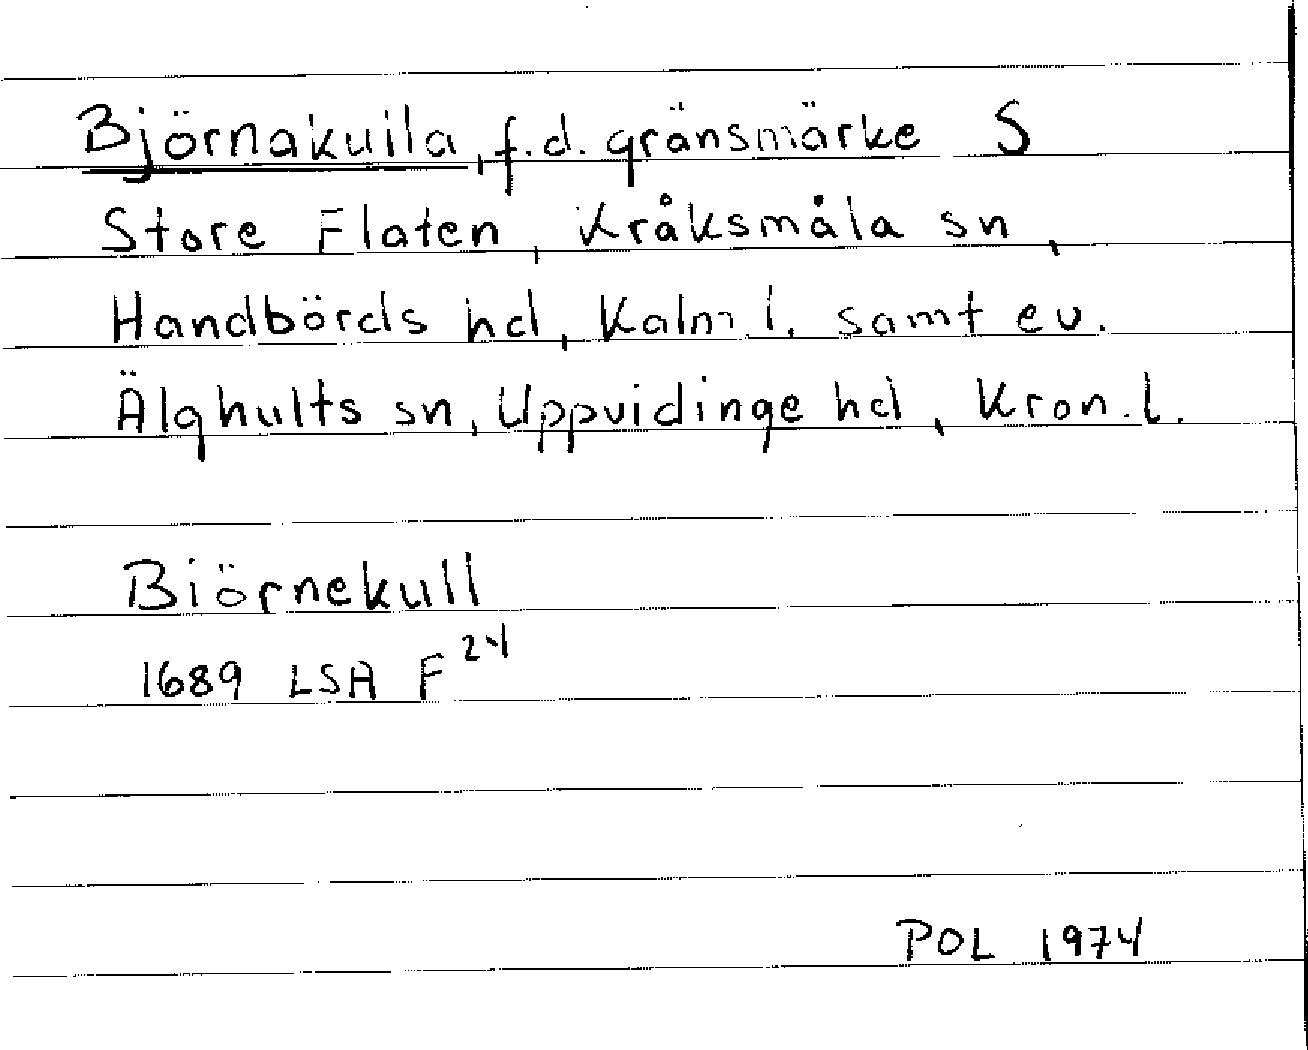 Björnakuila, f.d. gränsmärke S
Store Flaten, Kråksmåla sn,
Handbörds hd, Kalm.l. samt ev.
Älghults sn, Uppvidinge hd, Kron.l.
Biörnekull
1689 LSA F 24
POL 1974